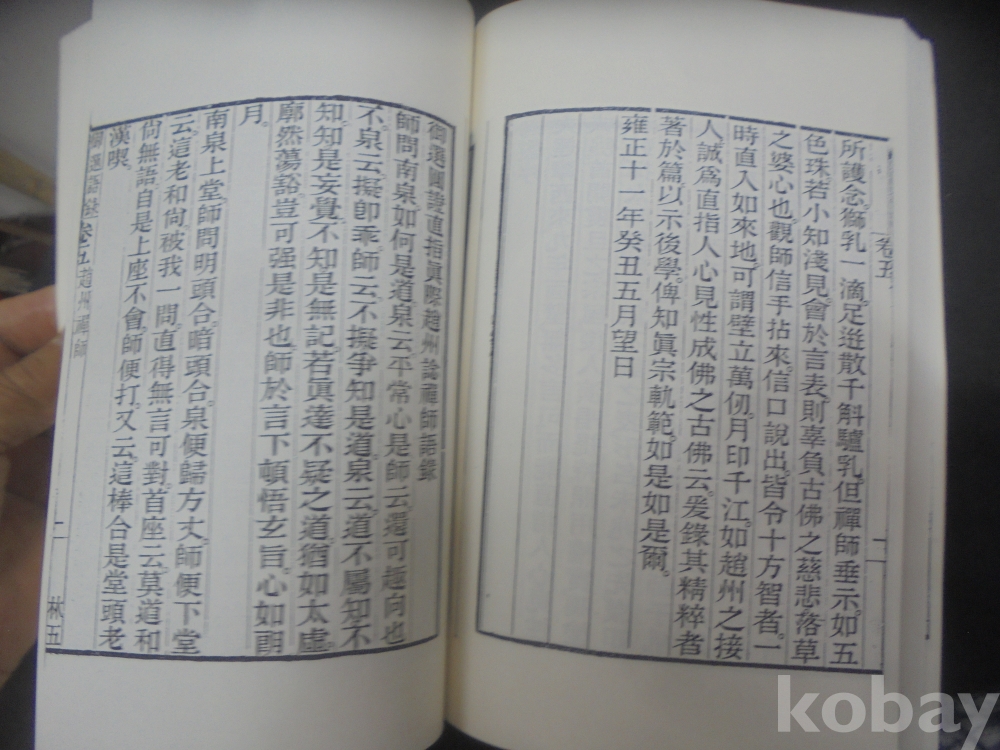 卷五
所護念獅乳一滴足迸散千斛驢乳但禪師垂示如五
色珠若小知淺見會於言表則辜負古佛之慈悲落草
之婆心也觀師信手拈來信口說出皆令十方智者一
時直入如來地可謂壁立萬仞月印千江如趙州之接
人誠爲直指人心見性成佛之古佛云爰錄其精粹者
著於篇以示後學俾知眞宗軌範如是如是爾
雍正十一年癸丑五月望日
二
御選圓證直指眞際趙州諗禪師語錄
師問南泉如何是道泉云平常心是師云還可趣向也
不泉云擬卽乖師云不擬爭知是道泉云道不屬知不
知知是妄覺不知是無記若眞達不疑之道猶如太虛
廓然蕩豁豈可强是非也師於言下頓悟玄旨心如朗
月
南泉上堂師問明頭合暗頭合泉便歸方丈師便下堂
云這老和尙被我一問直得無言可對首座云莫道和
尙無語自是上座不會師便打又云這棒合是堂頭老
漢喫
御選語錄卷五趙州禪師
二
林五
kobay